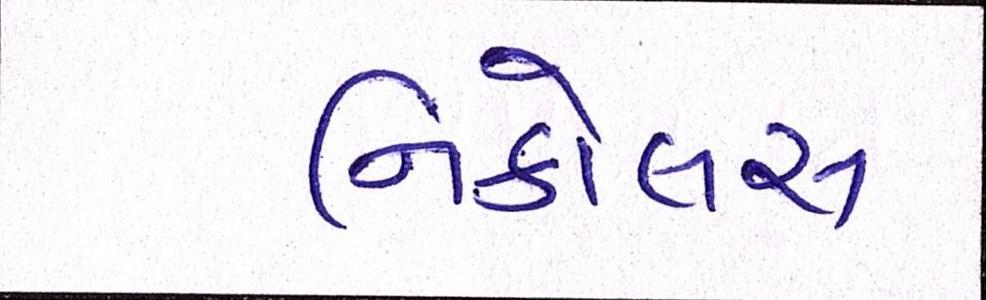 નિકોલસ